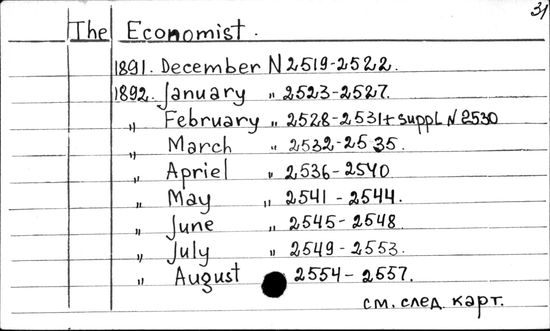 31
The Economist.
1891. December N 2519-2522.
1892. January „ 2523-2527.
„ February „ 2528-2531+suppl. N 2530
„ March „ 2532-2535.
„ Apriel „ 2536-2540
„ May „ 2541-2544.
„ June „ 2545-2548
„ July „ 2549-2553.
„ August 2554-2557.
см. след. карт.